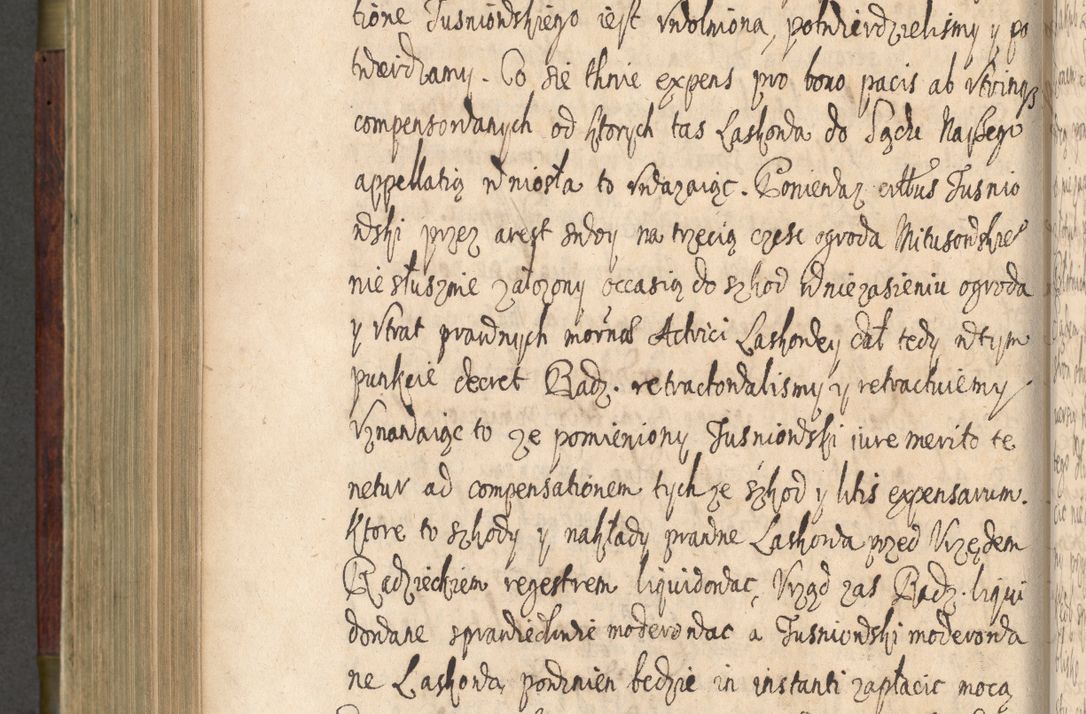 tione Tusniowskiego iest vwolniona, potwierdzielismy y po
twierdzamy. Co sie tknie expens pro bono pacis ab vtrinqꝫ
compensowanych od ktorych tas Laskowa do Sądu Naszego
appellatią wniosła to vwazaiąc. Poniewaz Tusnio
wski przez arest swoy na trzecią częsc ogroda Mitusowskie
niesłusznie założony occasią do szkod w niezasieniu ogroda
y vtrat prawnych Actrici Laskowey dał tedy w tym
punkcie decret Radz. retractowalismy y retractuiemy
Vznawaiąc to ze pomieniony Tusniowski iure merito te
netur ad compensationem tych ze szkod y litis expensarum.
Ktore to szkody y nakłady prawne Laskowa przed Vrzędem
Radzieckiem regestrem liquidowac, Vrząd zas Radz. liqui
dowane sprawiedliwie moderowac a Tusniowski moderowa
ne Laskowa, powinien bedzie in instanti zapłacic mocą